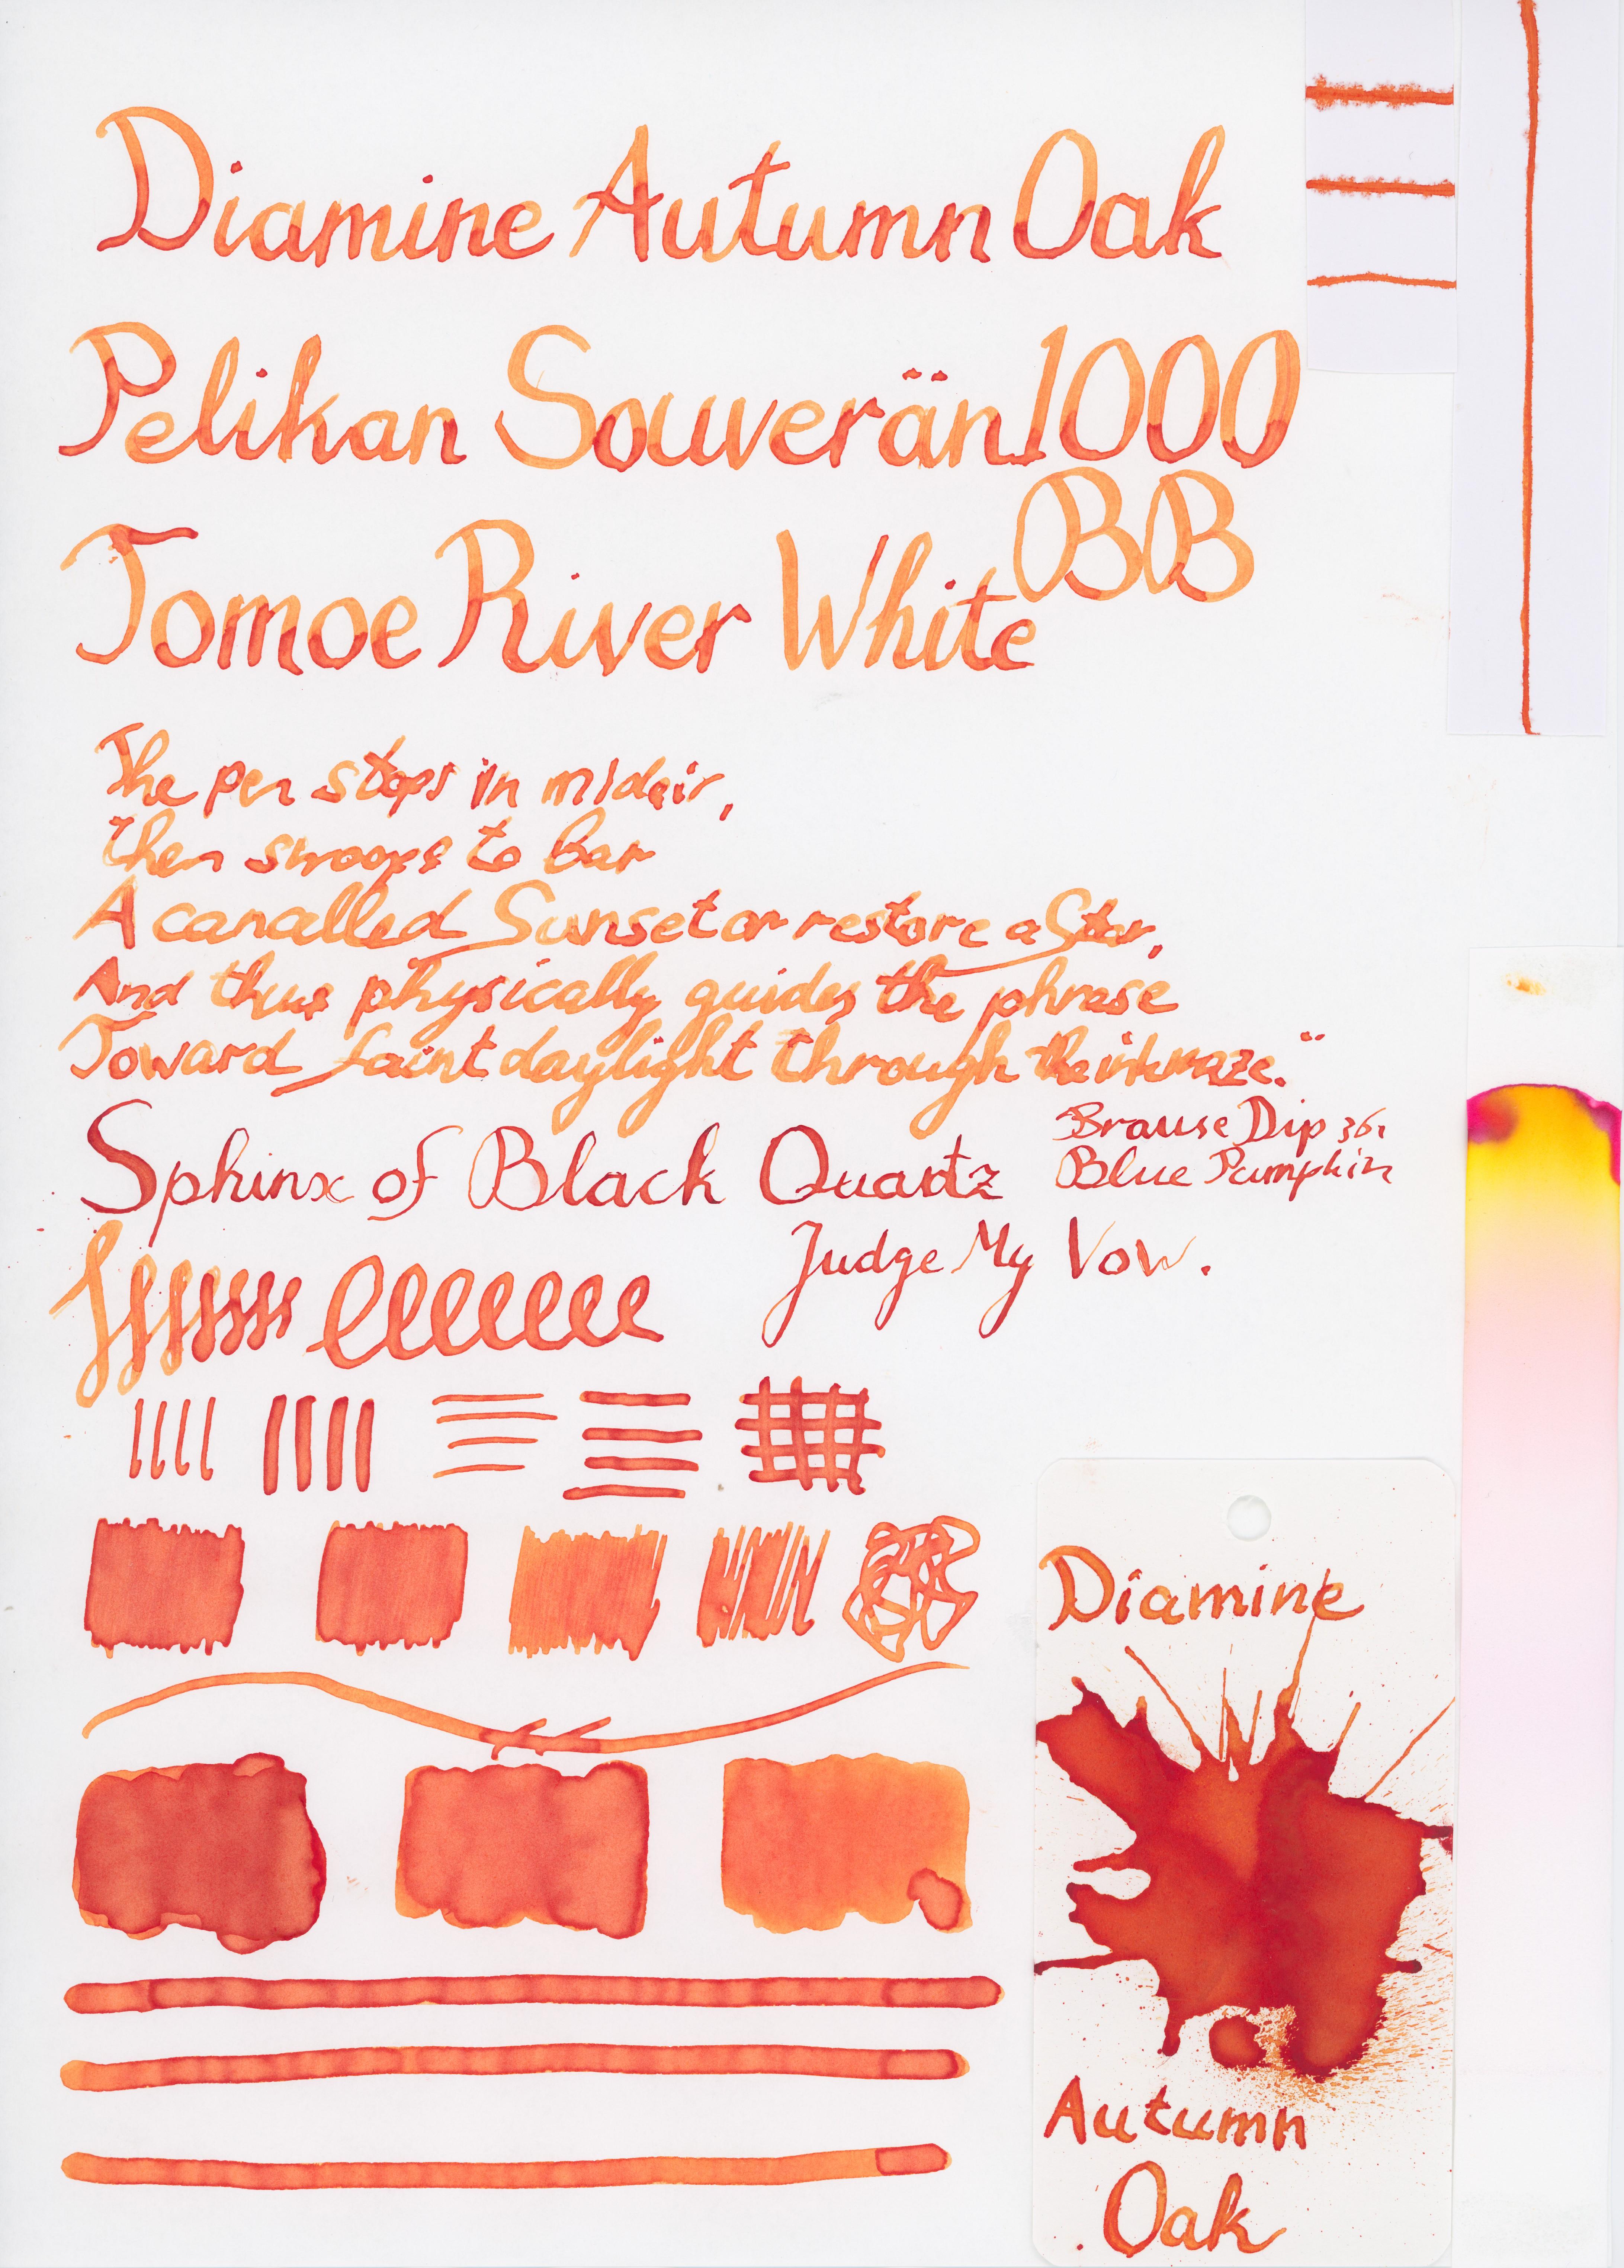 Diamine Autumn Oak
Pelikan Souverän 1000
BB
Tomoe River White
The pen stops in midair,
then swoops to bar
A canalled Sunset or restore a Star,
And thus physically guides the phrase
Toward faint daylight through the inkmaze."
Sphinx of Black Quartz
Brause Dip 361
Blue Pumpkin
Judge My Vow.
Diamine
Autumn
Oak